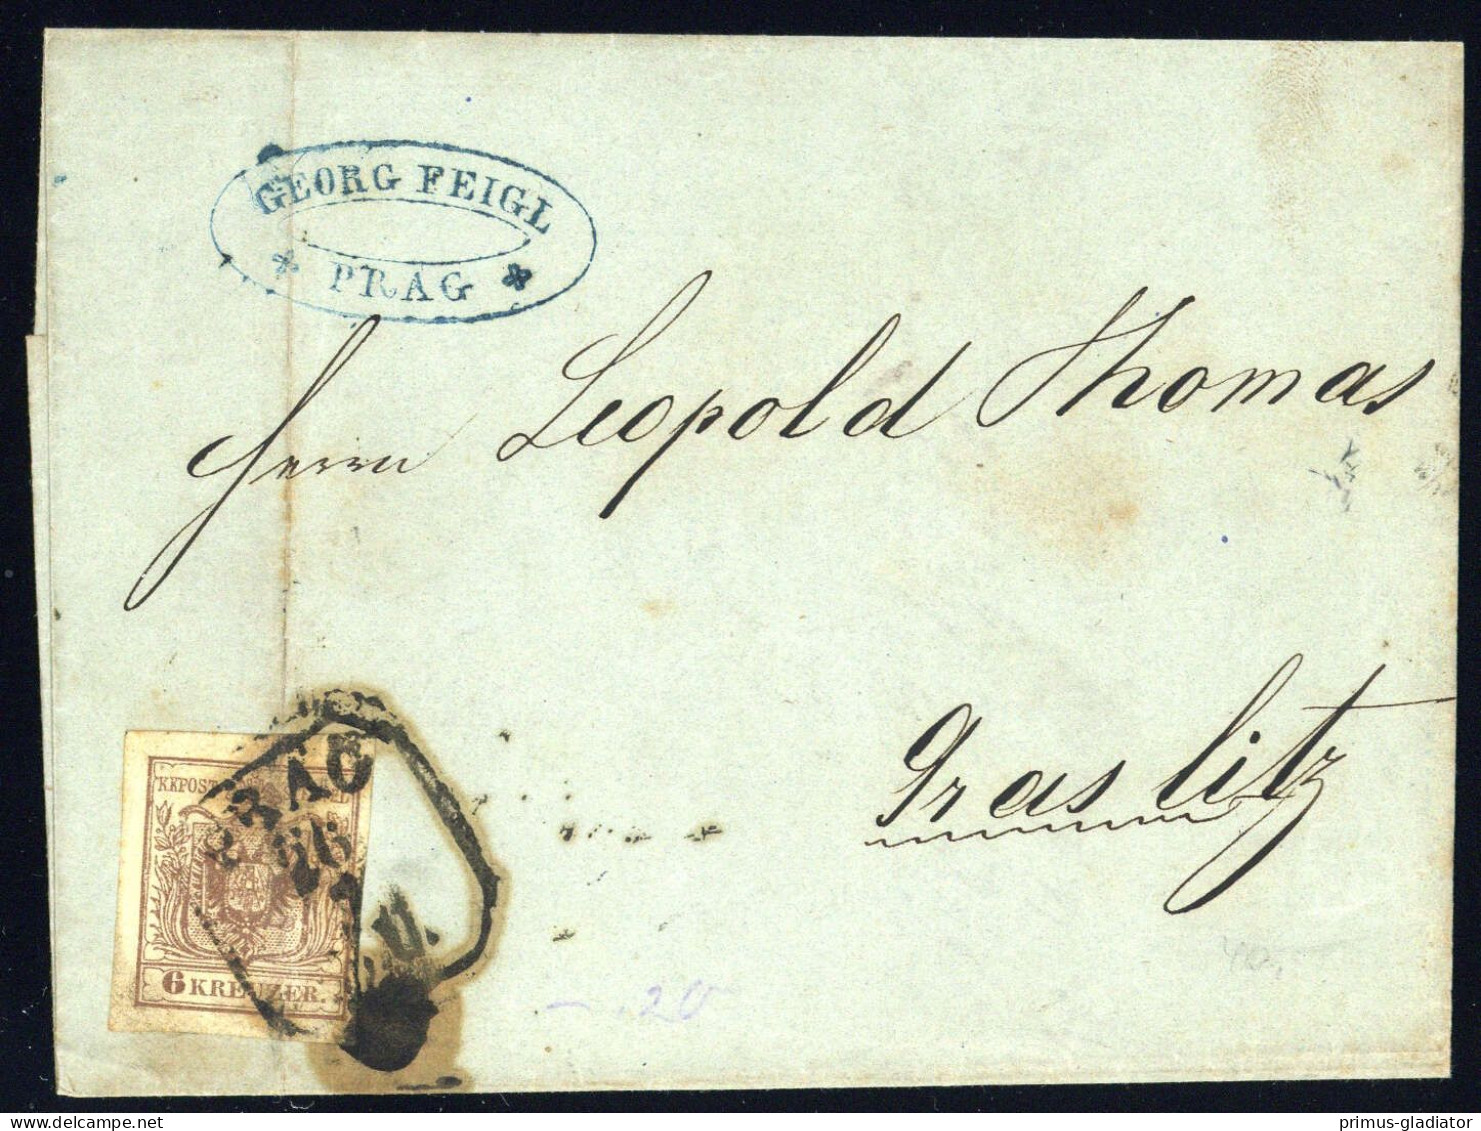 GEORG FEIGL
* PRAG *
Herrn Leopold Thomas
Graslitz
KKPOST
PRAG
6 KREUZER.
20
primus-gladiator